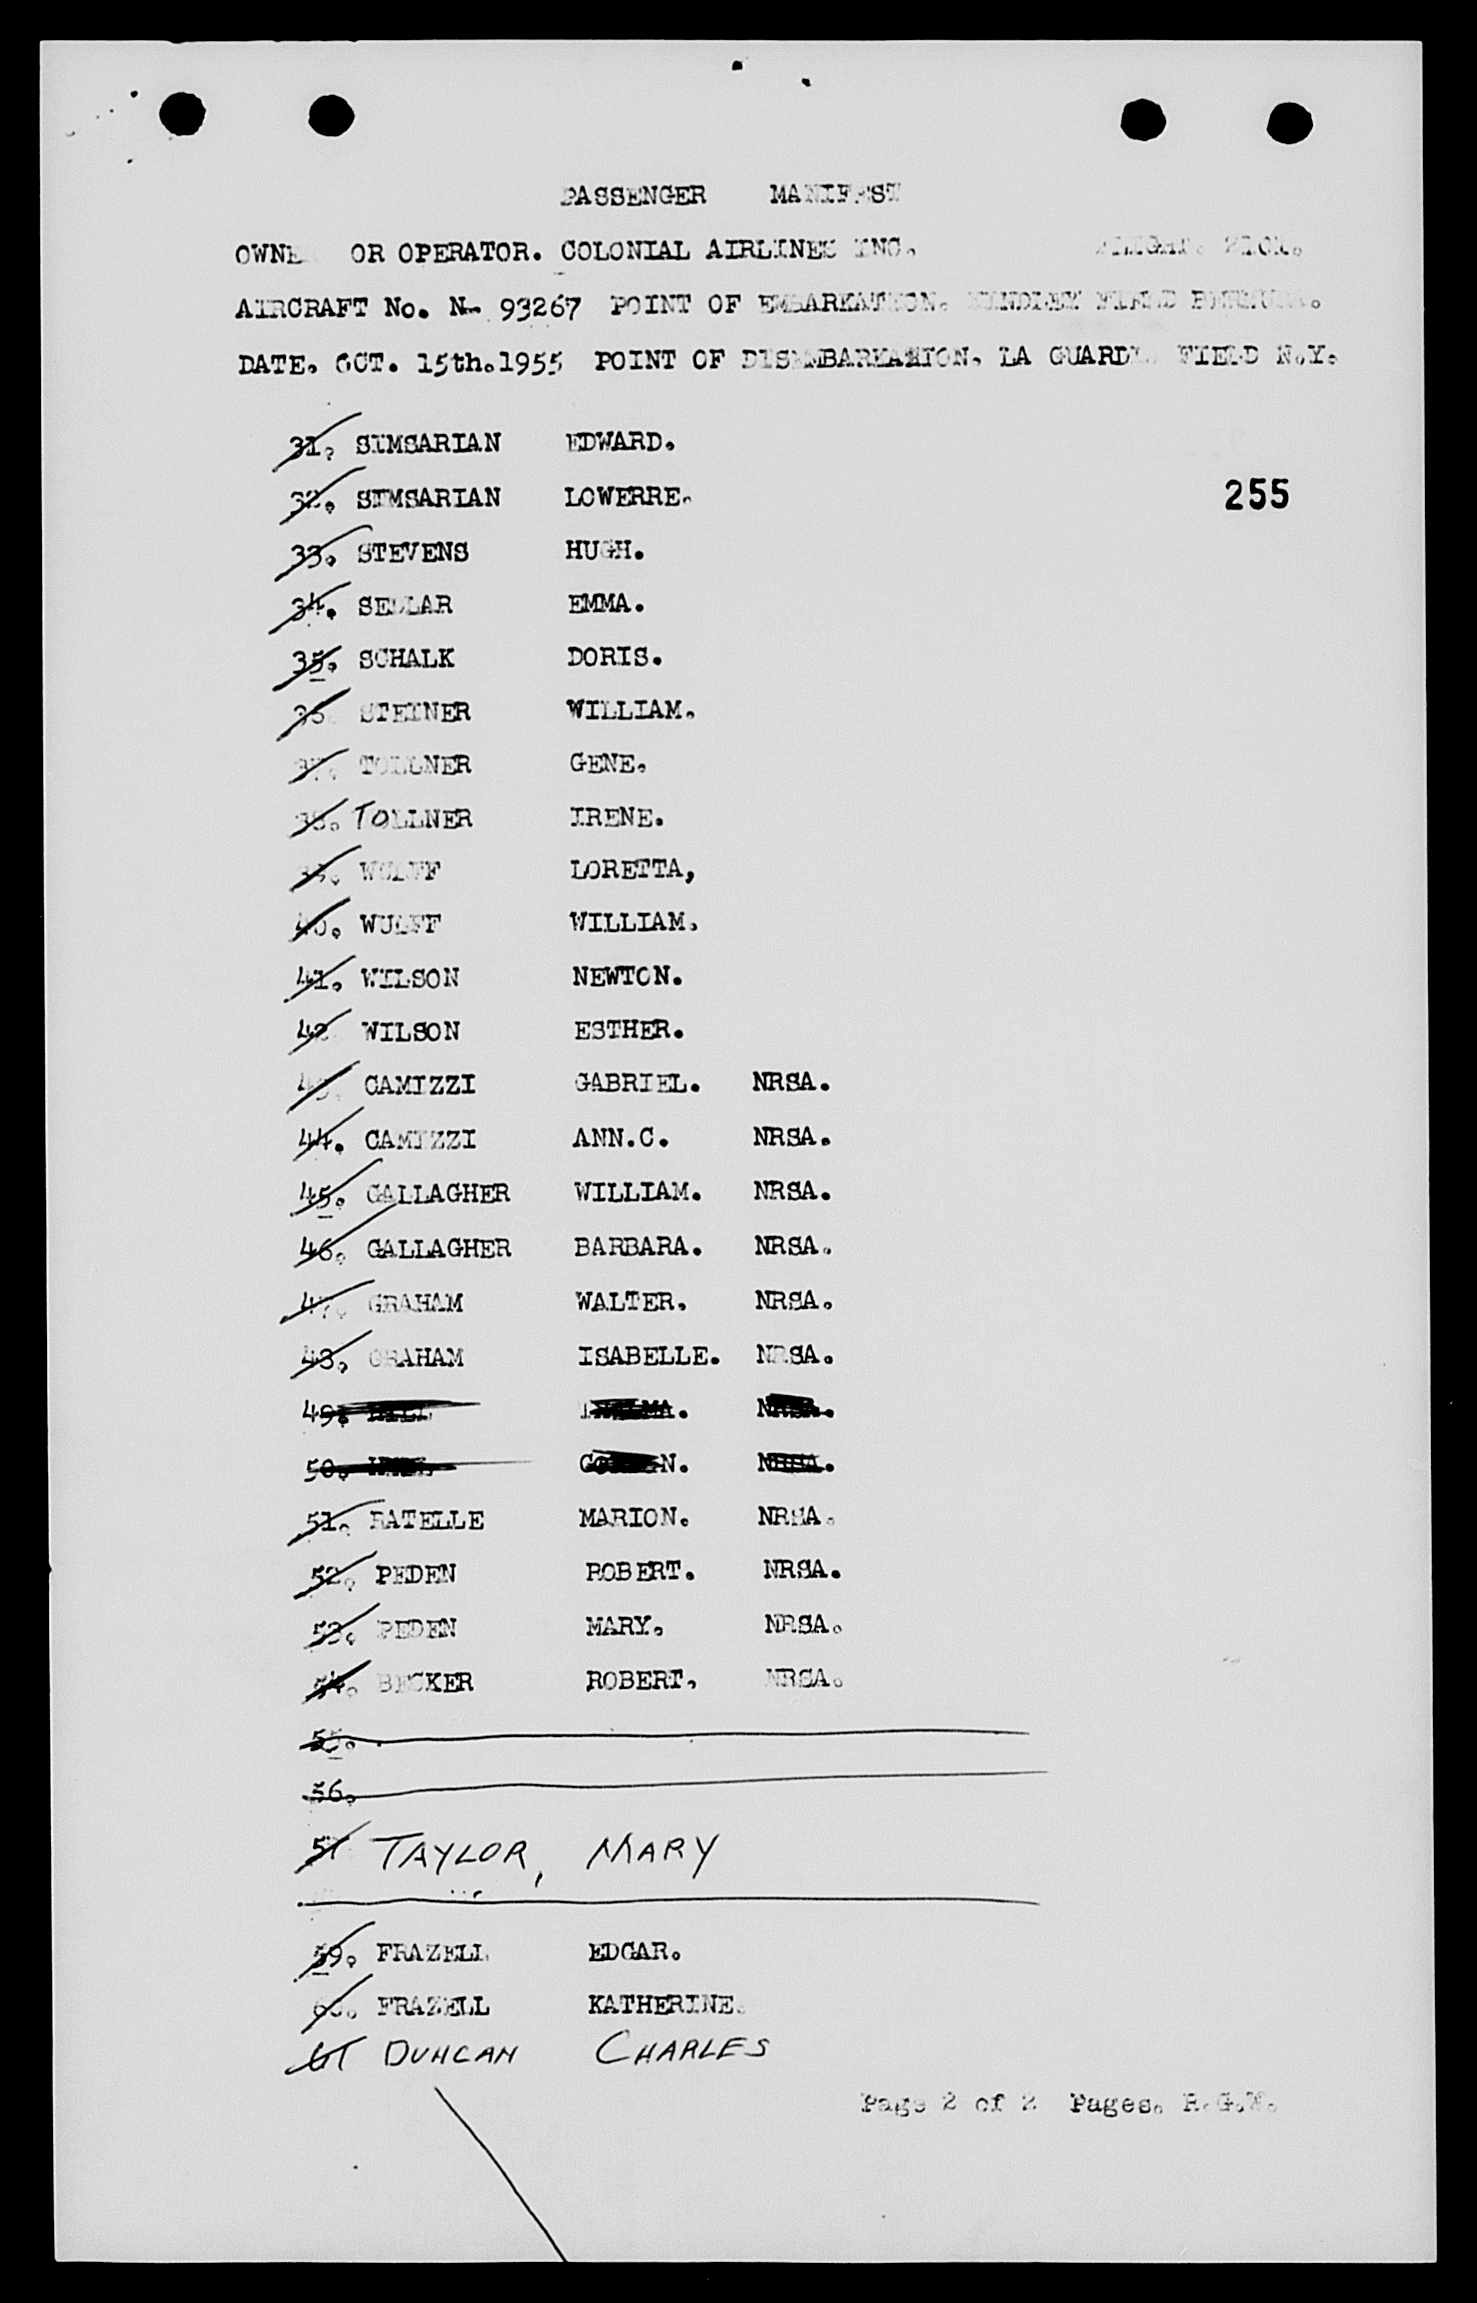 PASSENGER MANIFEST
OWNER OR OPERATOR. COLONIAL AIRLINES INC. FLIGHT.
AIRCRAFT No. N- 93267 POINT OF EMBARKATION. KINDLEY FIELD BERMUDA.
DATE. OCT. 15th.1955 POINT OF DISEMBARKATION. LA GUARDIA FIELD N.Y.
31. SIMSARIAN EDWARD.
32. SIMSARIAN LOWERRE.
255
33. STEVENS HUGH.
34. SELLAR EMMA.
35. SCHALK DORIS.
36 STEINER WILLIAM.
37. TOLLNER GENE.
38. TOLLNER IRENE.
39. WULFF LORETTA,
40. WULFF WILLIAM.
41. WILSON NEWTON.
42 WILSON ESTHER.
43. CAMIZZI GABRIEL. NRSA.
44. CAMIZZI ANN.C. NRSA.
45. GALLAGHER WILLIAM. NRSA.
46. GALLAGHER BARBARA. NRSA.
47. GRAHAM WALTER. NRSA.
48. GRAHAM ISABELLE. NRSA.
49. HILL NRSA.
50. NRSA.
51. RATELLE MARION. NRSA.
52. PEDEN ROBERT. NRSA.
53. PEDEN MARY. NRSA.
54. BECKER ROBERT. NRSA.
55.
56.
57 TAYLOR, MARY
59. FRAZELL EDGAR.
60. FRAZELL KATHERINE.
61 DUNCAN CHARLES
Page 2 of 2 Pages. R.G.W.